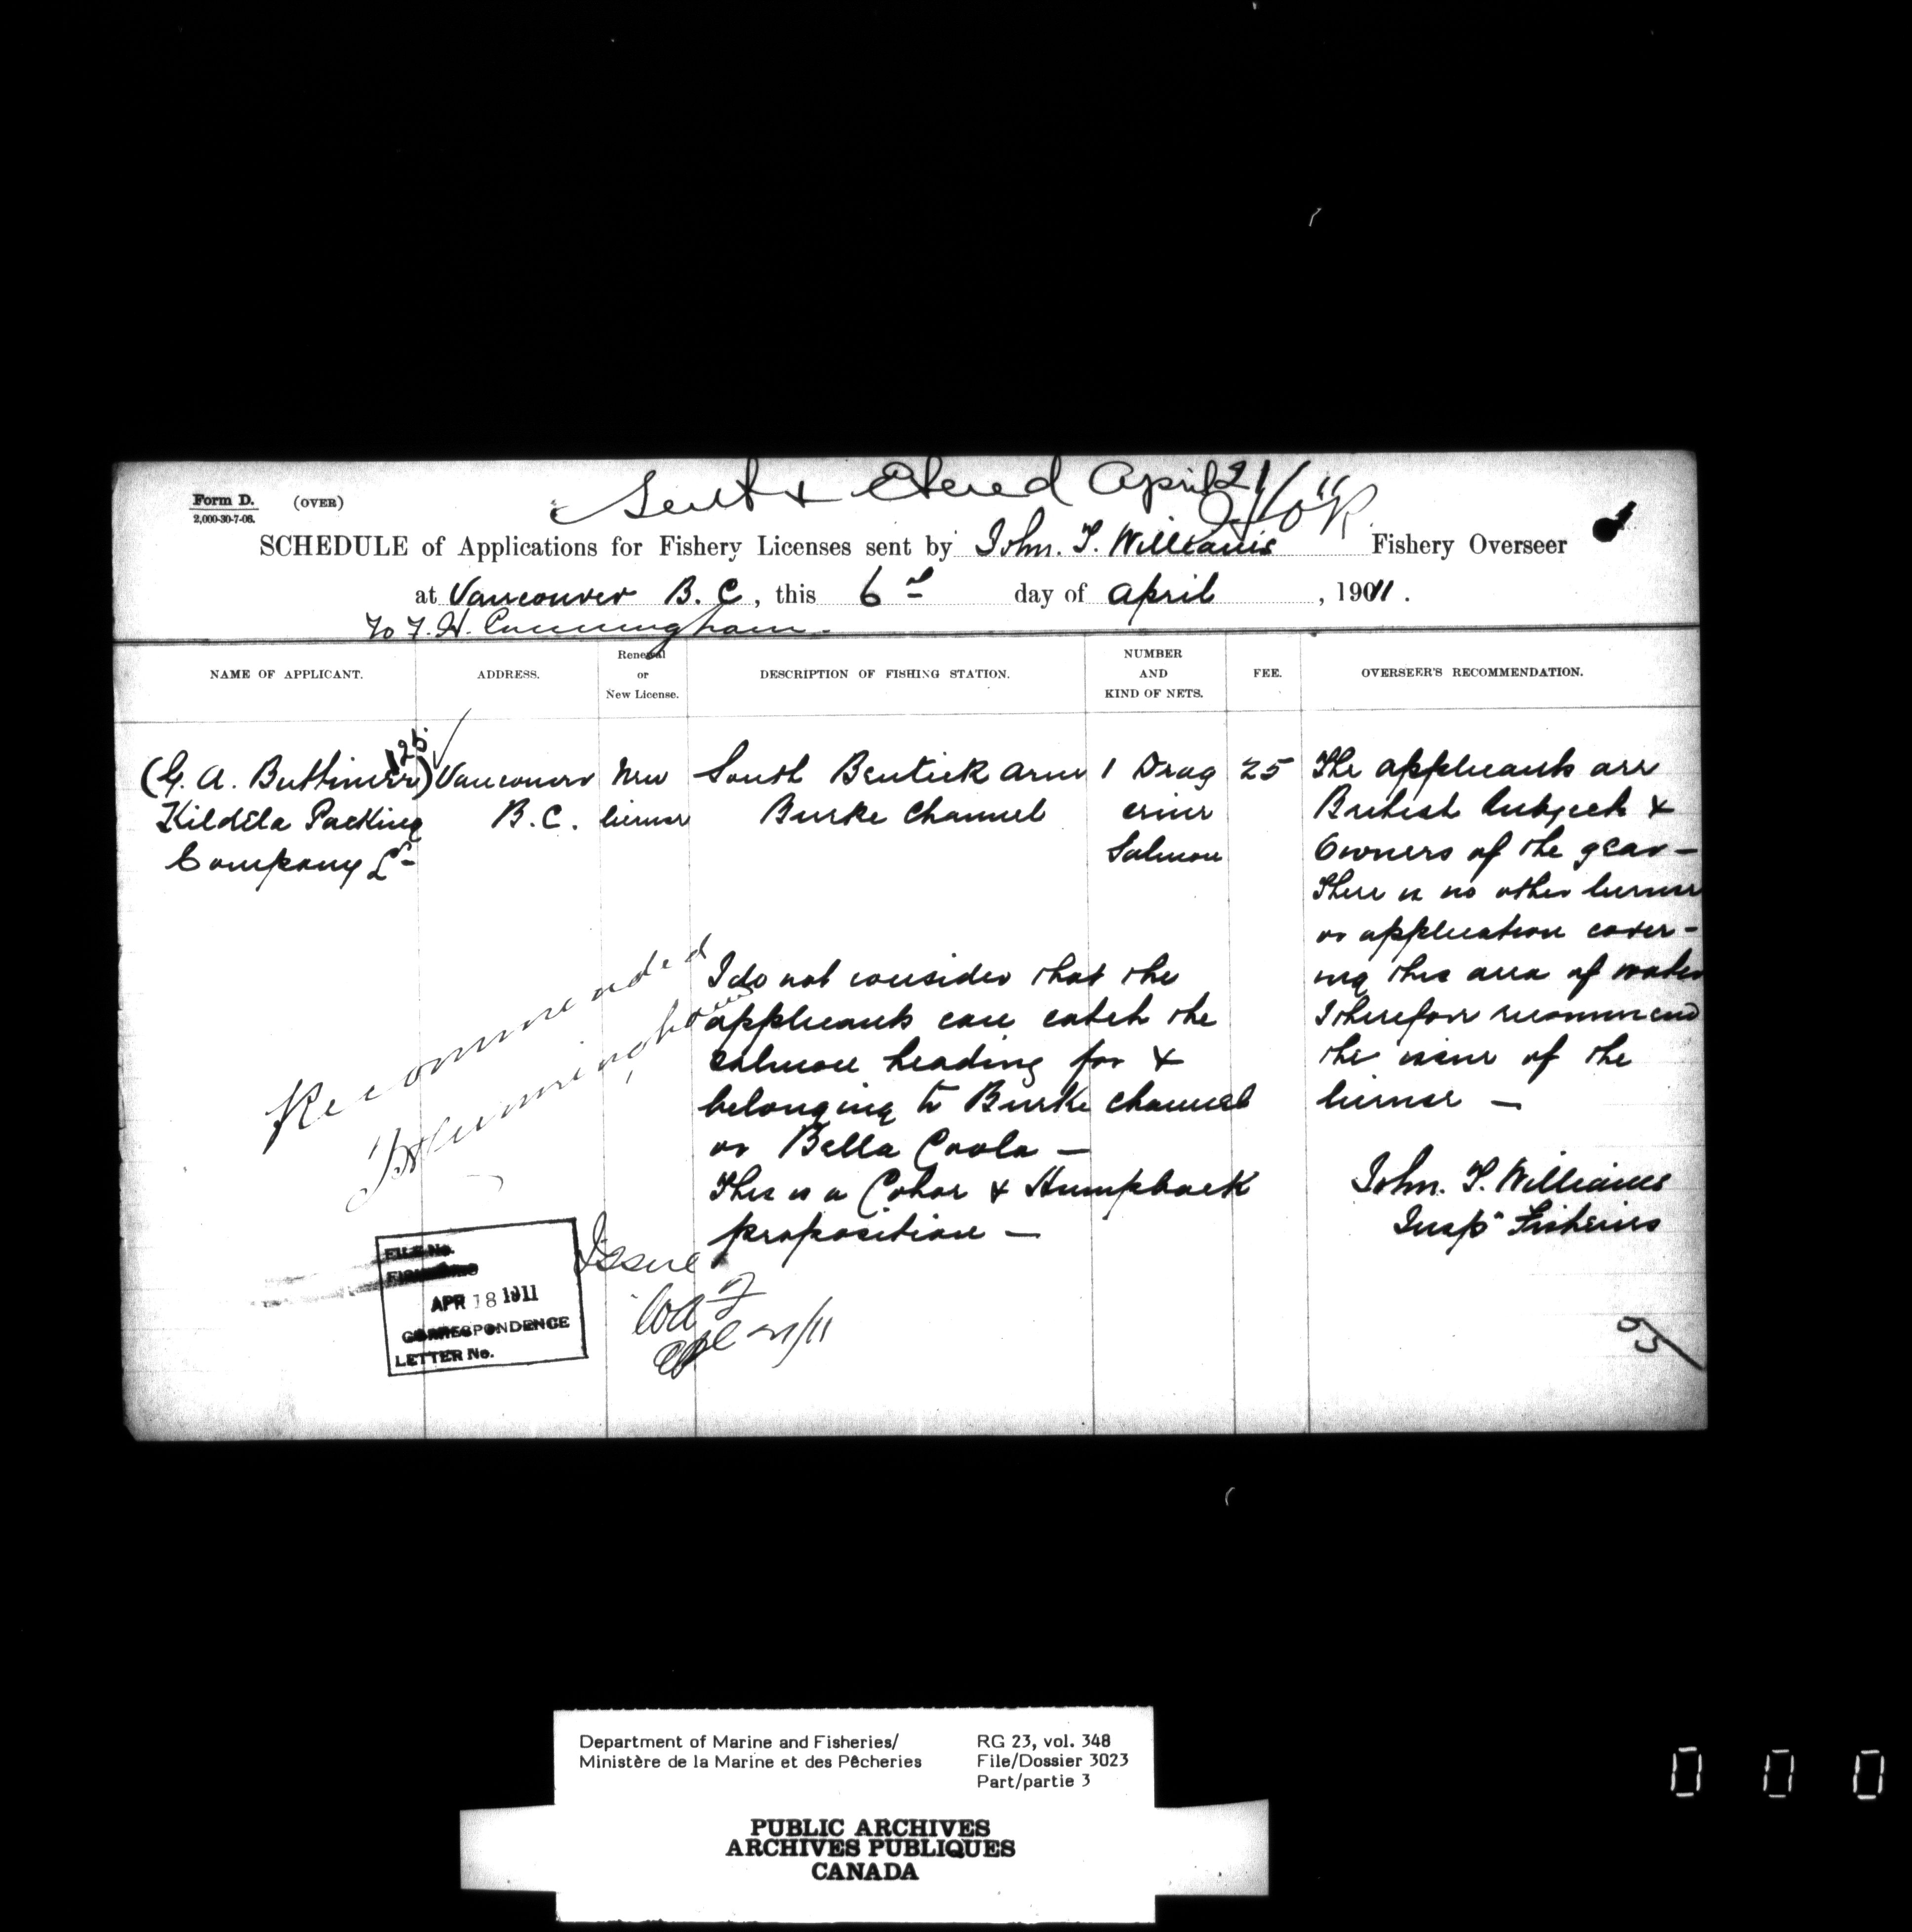 Sent & Etered April 21/11
OK
Form D. (OVER)
2,000-30-7-06.
SCHEDULE of Applications for Fishery Licenses sent by John. T. Williams Fishery Overseer
at Vancouver B. C, this 6th day of April, 1911.
To F. H. Cunningham.
NAME OF APPLICANT.
ADDRESS.
Renewal
or
New License.
DESCRIPTION OF FISHING STATION.
NUMBER
AND
KIND OF NETS.
FEE.
OVERSEER'S RECOMMENDATION.
126
(G. A. Buttimer)
Kildala Packing
Company Ld
Vancouver
B.C.
New
license
South Bentick Arm
Burke Channel
1 Drag
seine
Salmon
25
The applicants are
British Subjects &
Owners of the gear –
There is no other license
or application cover-
ing this area of water
I therefore recommend
the issue of the
license –
John. T. Williams
Insp Fisheries
I do not consider that the
applicants can catch the
salmon heading for &
belonging to Burke channel
or Bella Coola –
This is a Cohoe & Humpback
proposition –
Recommended
F H Cunningham
Issue
FILE No.
FISHERIES
APR 18 1911
CORRESPONDENCE
LETTER No.
Department of Marine and Fisheries/
Ministère de la Marine et des Pêcheries
RG 23, vol. 348
File/Dossier 3023
Part/partie 3
PUBLIC ARCHIVES
ARCHIVES PUBLIQUES
CANADA
0 0 0